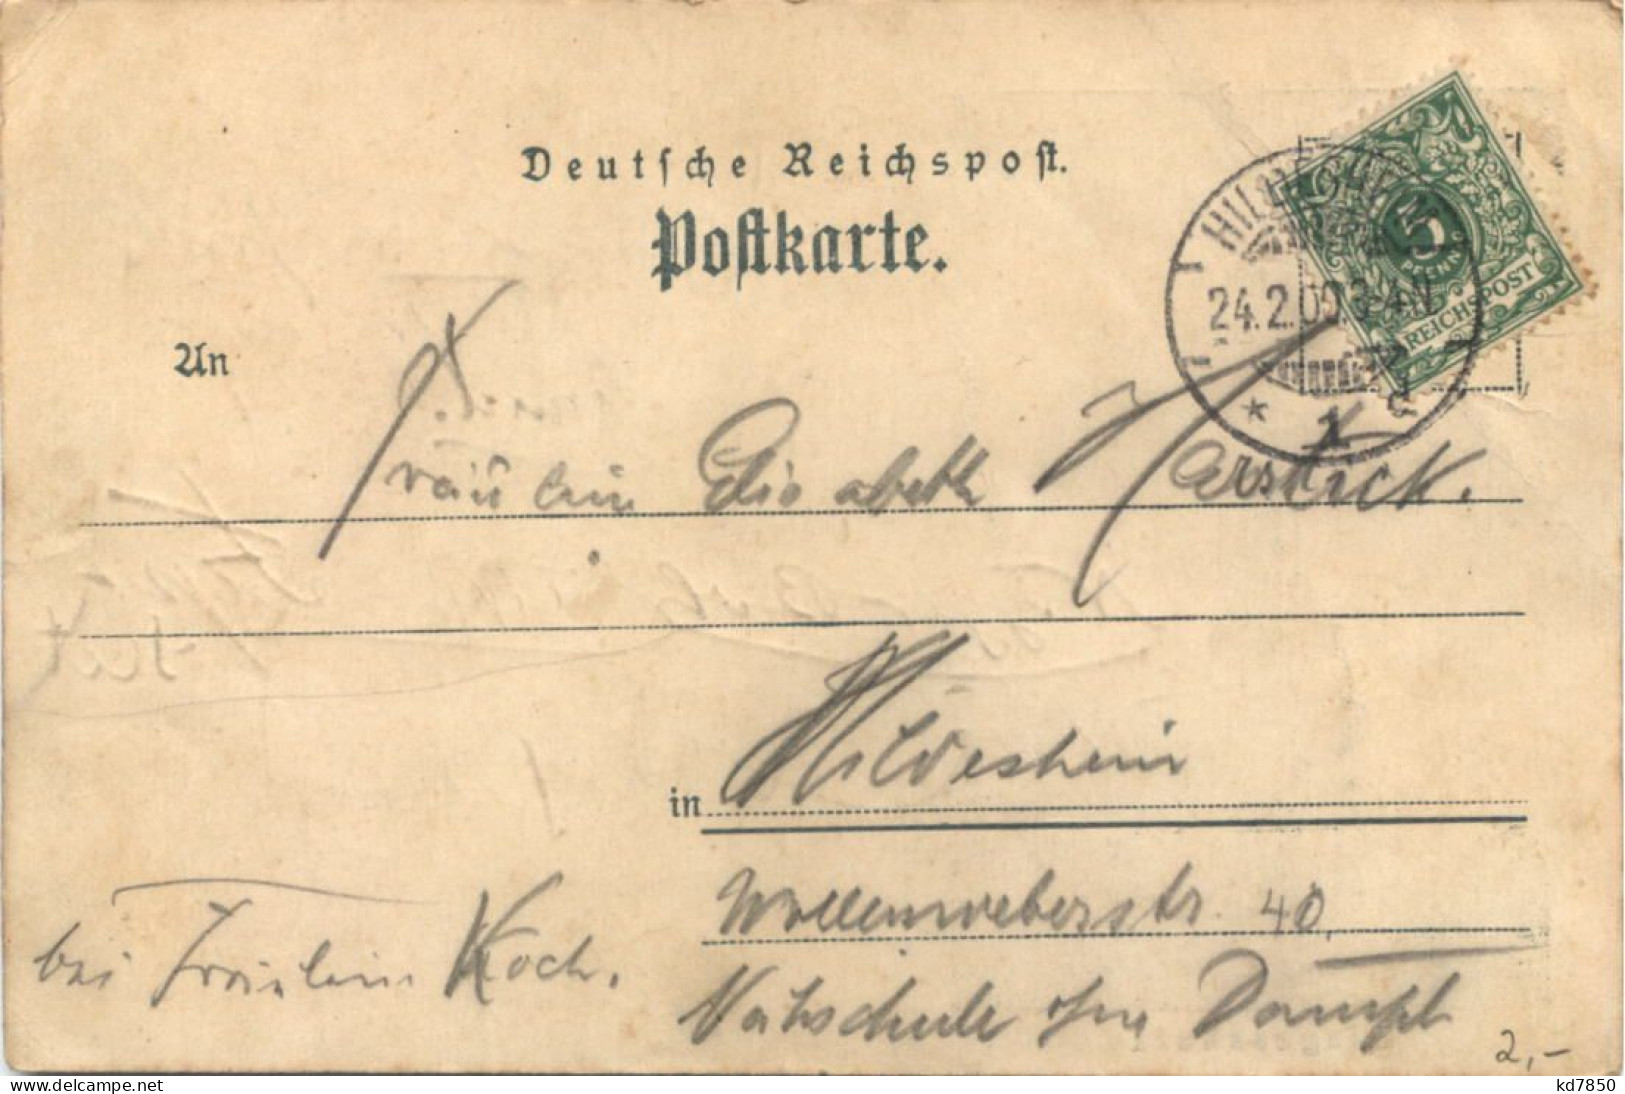 Deutsche Reichspost.
Postkarte.
HILDESHEIM
24.2.00.3-4N.
* 1 c
5
PFENNIG
REICHSPOST
An
Fräulein Elisabeth
in Hildesheim
Wollenweberstr. 40.
bei Fräulein Koch.
Nähschule ohne Dampf
2,-
kd7850